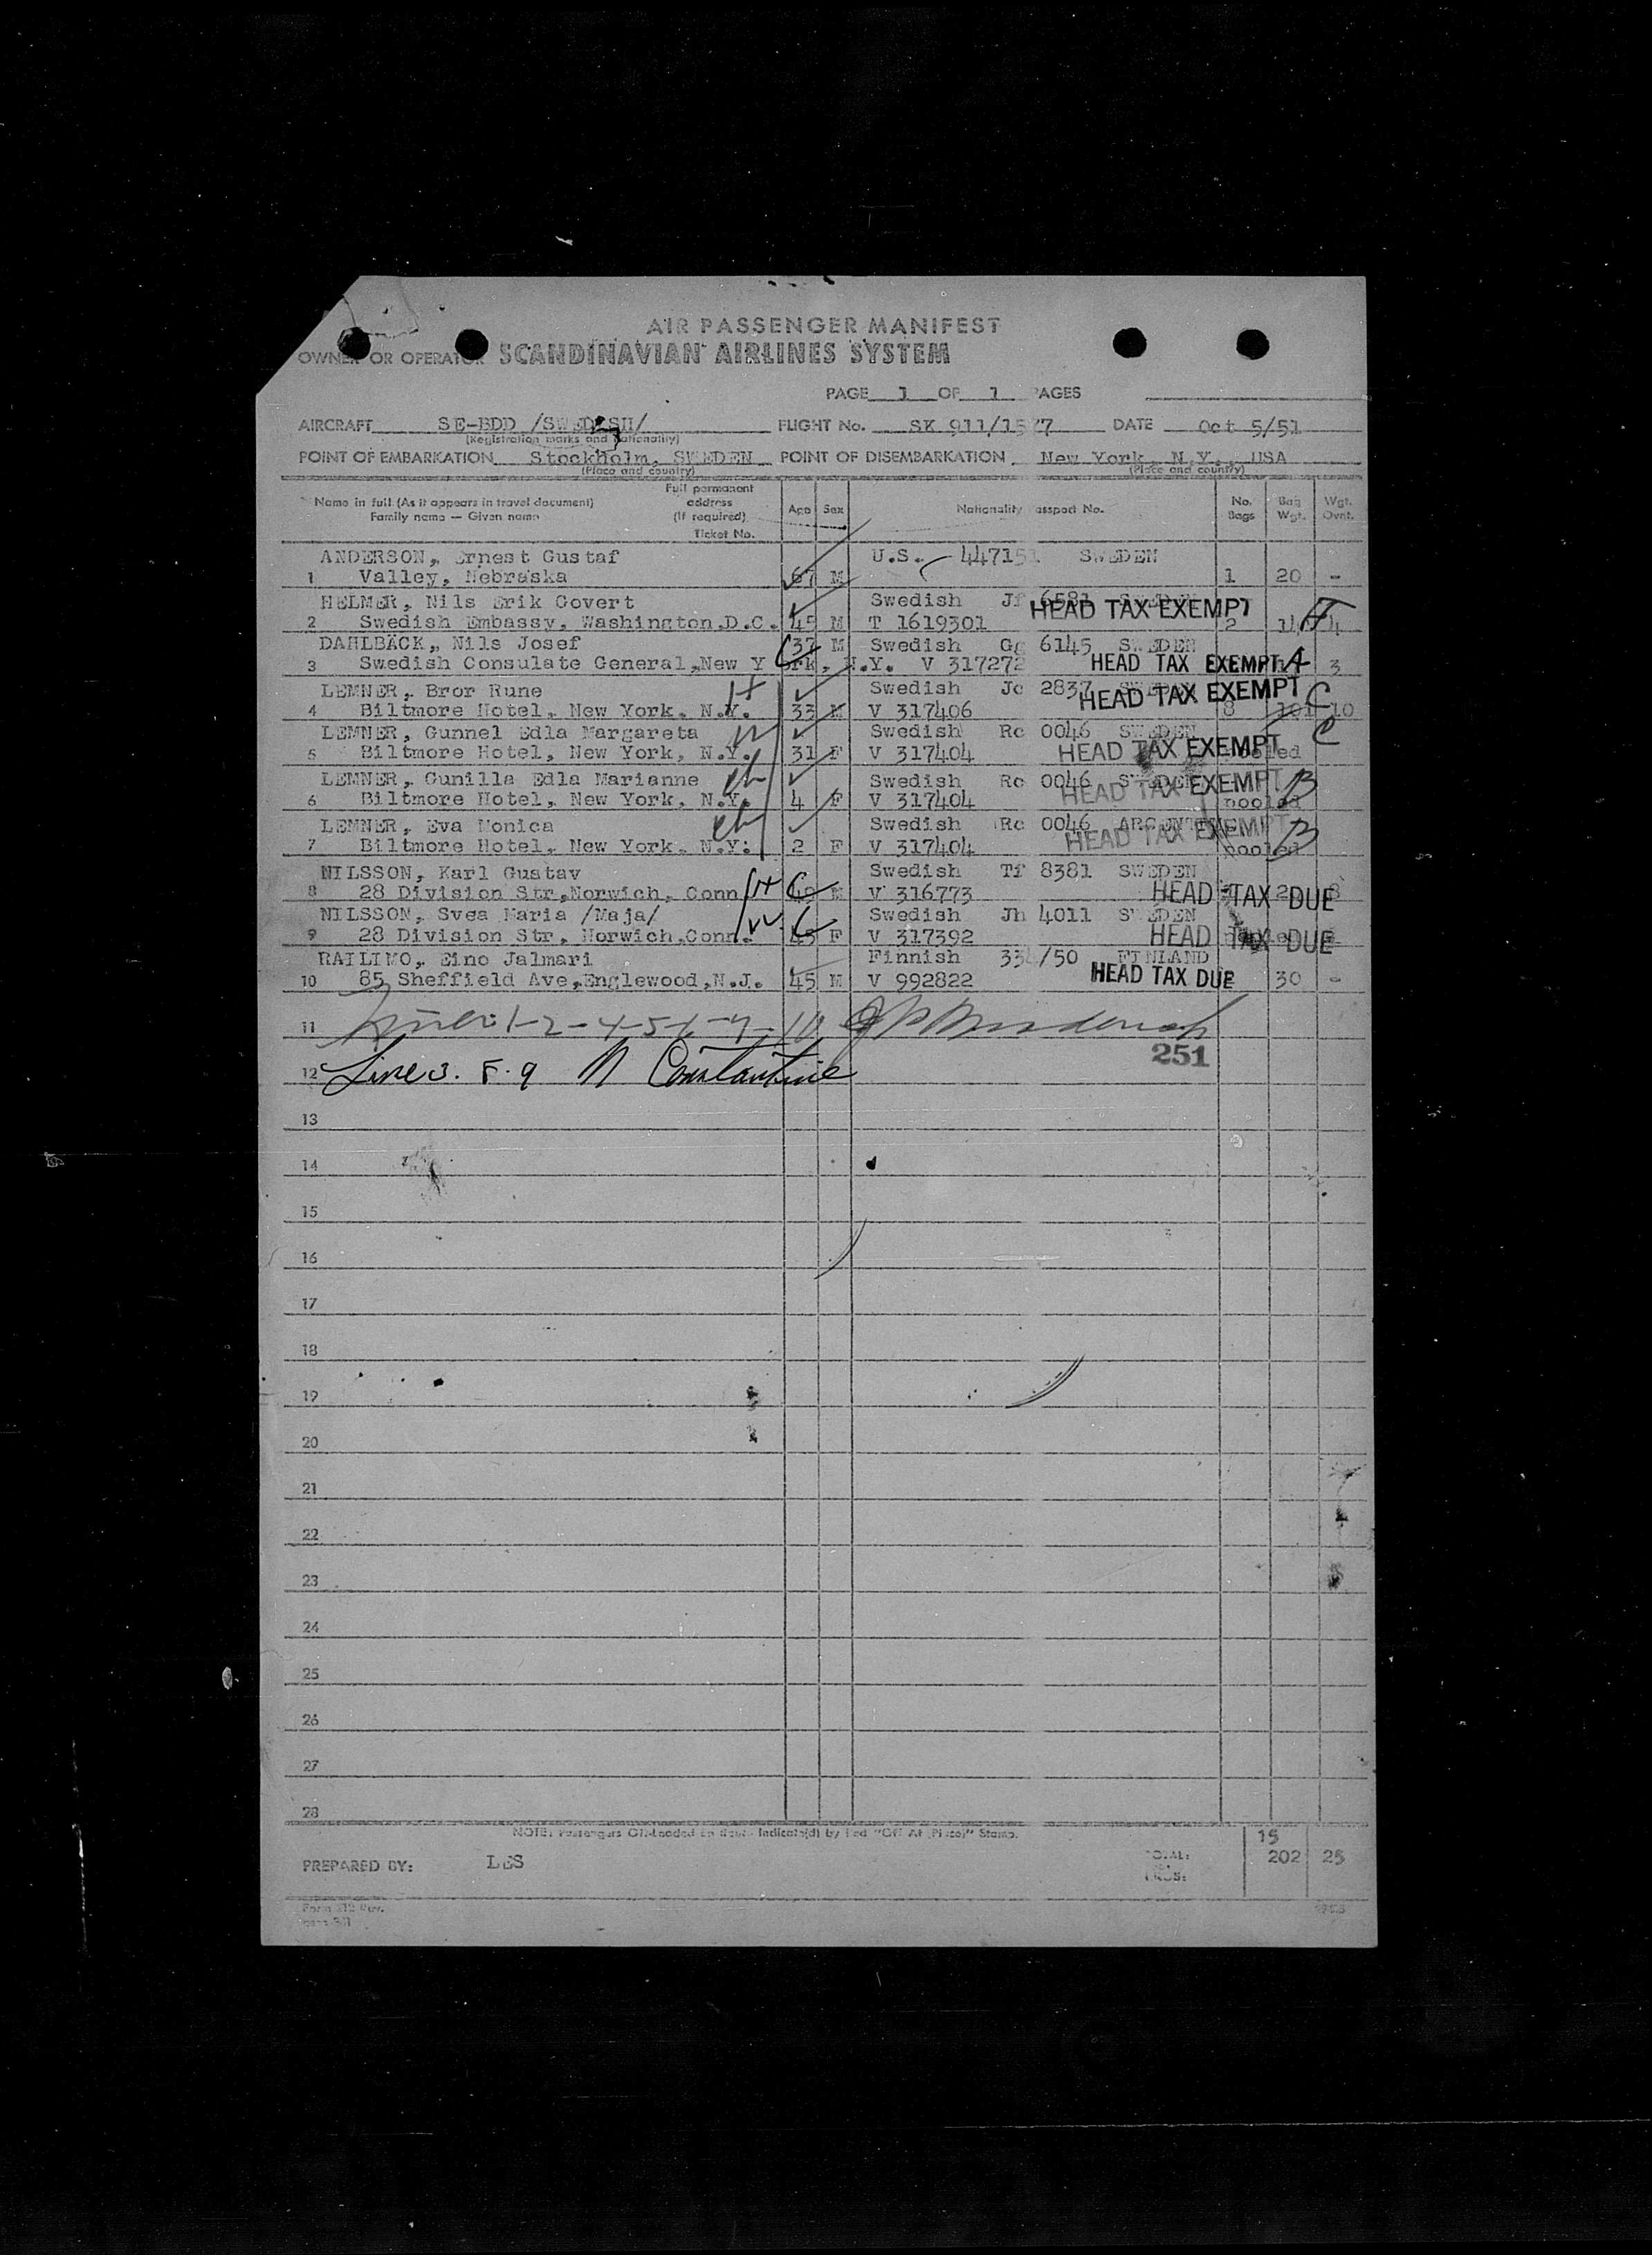 AIR PASSENGER MANIFEST
OWNER OR OPERATOR SCANDINAVIAN AIRLINES SYSTEM
PAGE 1 OF 1 PAGES
AIRCRAFT SE-BDD /SWEDISH/ FLIGHT No. SK 911/1577 DATE Oct 5/51
(Registration marks and Nationality)
POINT OF EMBARKATION Stockholm, SWEDEN POINT OF DISEMBARKATION New York, N.Y., USA
(Place and country) (Place and country)
Name in full (As it appears in travel document) Family name — Given name Full permanent address (If required) Ticket No. Age Sex Nationality assport No. No. Bags Bag Wgt. Wgt. Ovnt.
ANDERSON, Ernest Gustaf U.S. 447151 SWEDEN
1 Valley, Nebraska 67 M 1 20 -
HELMER, Nils Erik Govert Swedish Jf 6581 SWEDEN
HEAD TAX EXEMPT
2 Swedish Embassy, Washington, D.C. 45 M T 1619301 2 4
DAHLBÄCK, Nils Josef 37 M Swedish Gg 6145 SWEDEN
3 Swedish Consulate General, New York, N.Y. V 317272 HEAD TAX EXEMPT A 3
LEMNER, Bror Rune Swedish Jc 2837 SWEDEN
HEAD TAX EXEMPT C
4 Biltmore Hotel, New York, N.Y. 33 M V 317406 8 101 10
LEMNER, Gunnel Edla Margareta Swedish Rc 0046 SWEDEN C
5 Biltmore Hotel, New York, N.Y. 31 F V 317404 HEAD TAX EXEMPT pooled
LEMNER, Gunilla Edla Marianne Swedish Rc 0046 SWEDEN
HEAD TAX EXEMPT B
6 Biltmore Hotel, New York, N.Y. 4 F V 317404 pooled
LEMNER, Eva Monica Swedish Rc 0046 ARGENTINE
HEAD TAX EXEMPT B
7 Biltmore Hotel, New York, N.Y. 2 F V 317404 pooled
NILSSON, Karl Gustav Swedish Tf 8381 SWEDEN
8 28 Division Str, Norwich, Conn 49 M V 316773 HEAD TAX DUE
NILSSON, Svea Maria /Maja/ Swedish Jh 4011 SWEDEN
9 28 Division Str, Norwich, Conn. 45 F V 317392 HEAD TAX DUE
RAILIMO, Eino Jalmari Finnish 334/50 FINLAND
10 85 Sheffield Ave, Englewood, N.J. 45 M V 992822 HEAD TAX DUE 30 -
11
251
12 Lines. 8. 9 N Constantine
13
14
15
16
17
18
19
20
21
22
23
24
25
26
27
28
NOTE: Passengers Off-Loaded En Route Indicate(d) by Red "Off At (Place)" Stamp.
15
PREPARED BY: LES TOTAL: 202 25